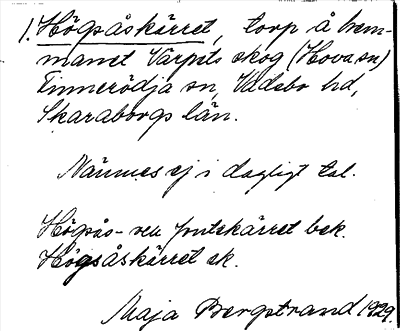 1. Högsåskärret, torp å hem-
manet Värpils skog (Hova sn)
Finnerödja sn, Vadsbo hd,
Skaraborgs län.
Nämnes ej i dagligt tal.
Högsås- bek.
Högsåskärret ek.
Maja Bergstrand 1929.